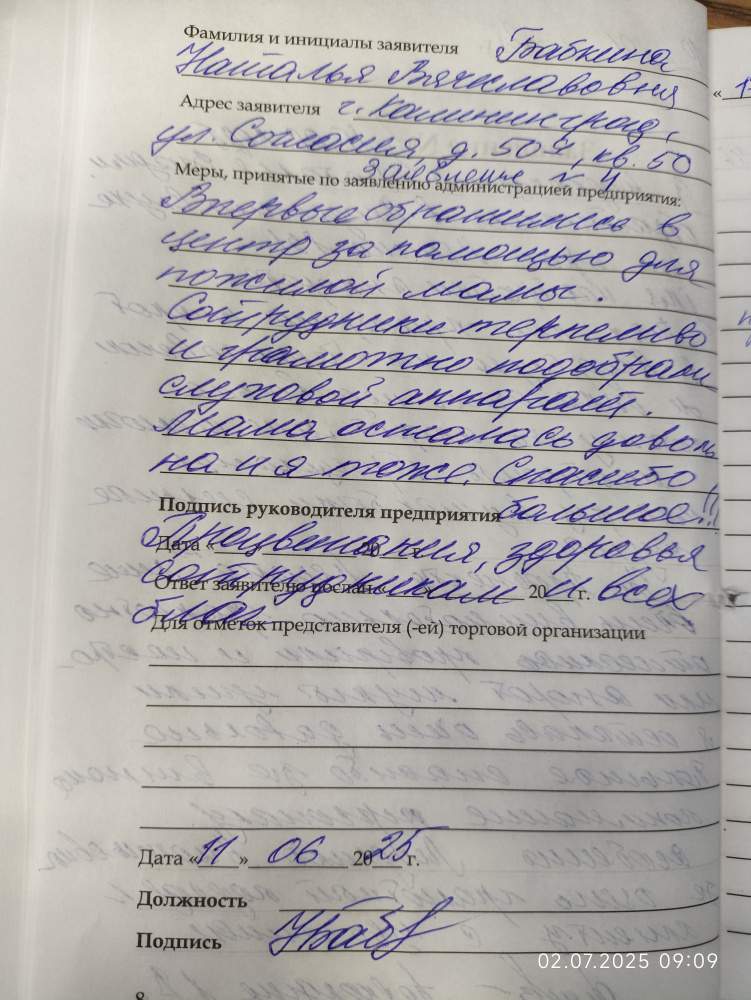 Фамилия и инициалы заявителя Бабкина
Наталья Вячеславовна
Адрес заявителя г. Калининград,
ул. Согласия д. 50, кв. 50
Заявление № 4
Меры, принятые по заявлению администрацией предприятия:
Впервые обратились в
центр за помощью для
пожилой мамы.
Сотрудники терпеливо
и грамотно подобрали
слуховой аппарат.
Мама осталась доволь
на и я тоже. Спасибо
Подпись руководителя предприятия большое!!
Дата « 20 г.
Процветания, здоровья
Ответ заявителю послан « 20 г.
сотрудникам и всех
благ
Для отметок представителя (-ей) торговой организации
Дата «11» 06 2025 г.
Должность
Подпись
02.07.2025 09:09
8